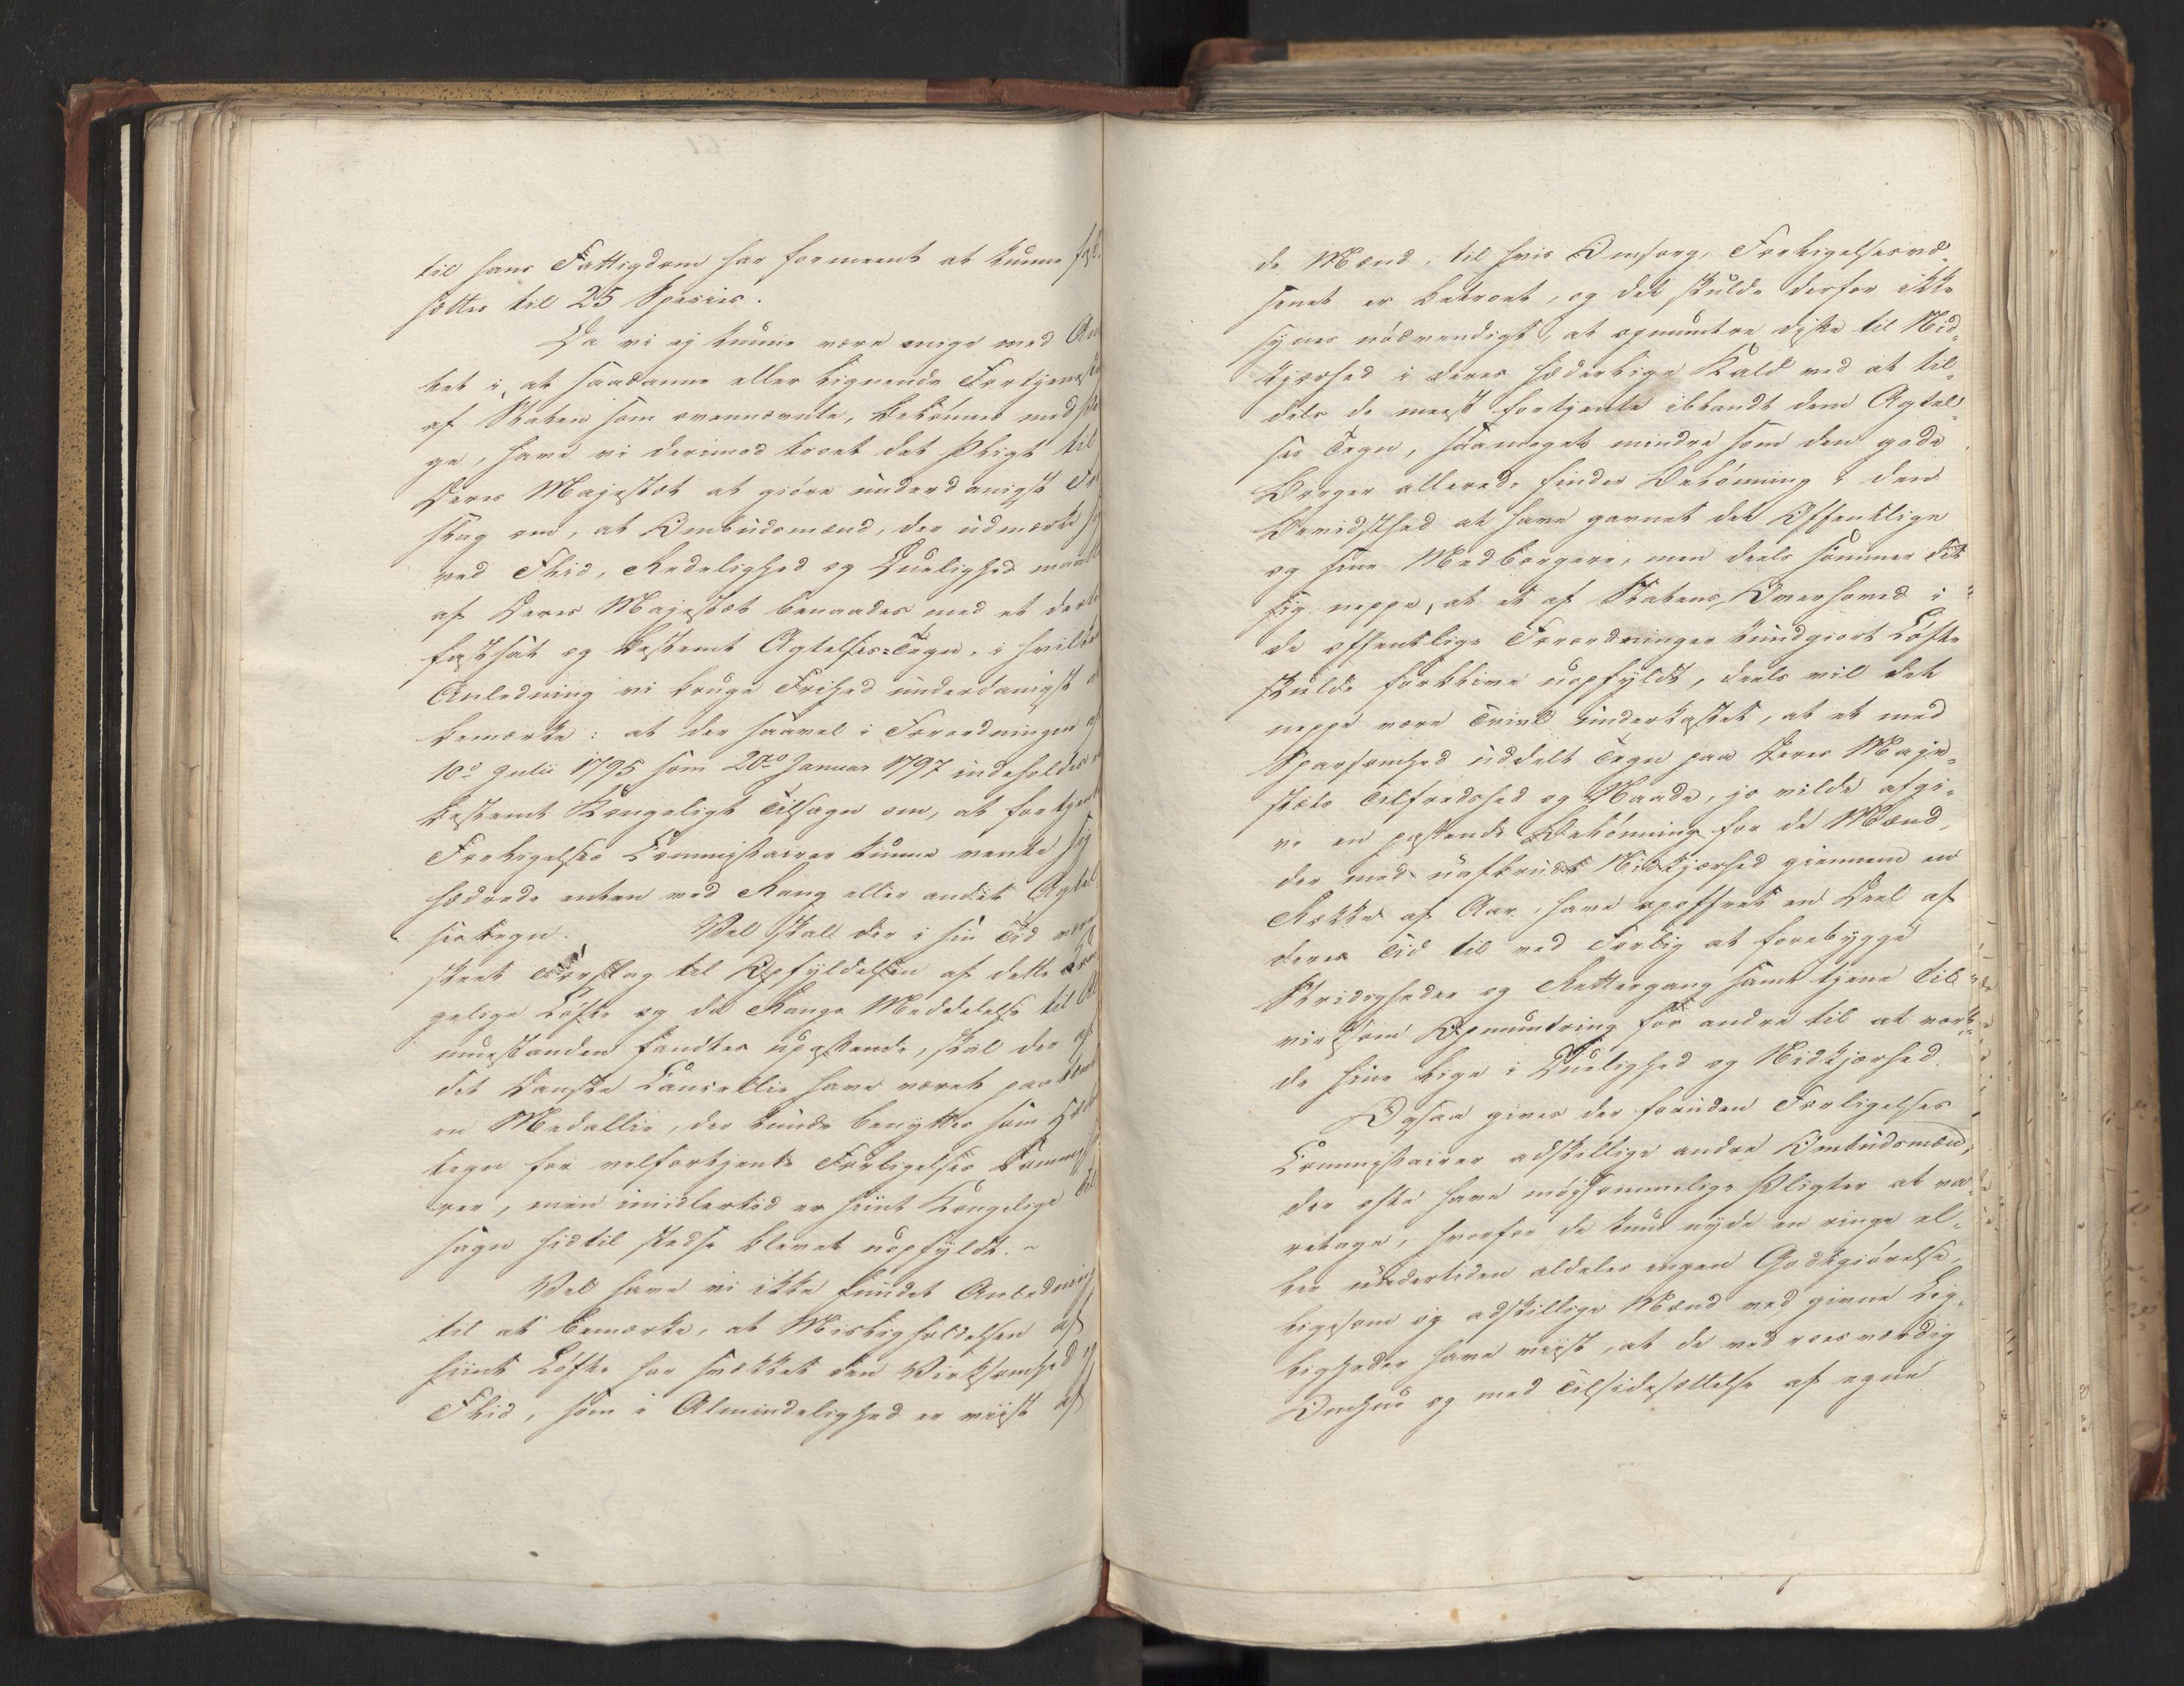 til hans Fattigdom har formeent at kunne fast¬
sættes til 25 Species.
Da vi ej kunne være enige med Am
tet i, at saadanne eller lignende Fortjenest
af Staten som ovennævnte, belønnes med
ge, have vi derimod troet det Pligt til
Deres Majestæt at giøre underdanigst For
slag om, at Ombudsmænd, der udmærke sig
ved Flid, Redelighed og Duelighed maatte
af Deres Majestæt benaades med et dertil
fastsat og bestemt Agtelses-Tegn, i hvilken
Anledning vi bruge Frihed underdanigst at
bemærke: at der saavel i Forordningen af
10de Julii 1795 som 20de Januar 1797 indeholdes et
bestemt Kongeligt Tilsagn om, at fortjente
Forligelses Commissairer kunne vente sig
hædrede enten med Rang eller andet Agtel¬
sestegn. Vel skal der i sin Tid være
skeet Forslag til Opfyldelsen af dette Kon
gelige Løfte og da Rangs Meddelelse til Al
muestanden fandtes upassende, skal der af
det Danske Cancellie have været paatænkt
en Medallie, der kunde benyttes som Hæders
tegn for velfortjente Forligelses Commissai
rer, men imidlertid er hiint Kongelige Til
sagn hidtil stedse blevet uopfyldt.-
Vel have vi ikke fundet Anledning
til at bemærke, at Misligholdelsen af
hiint Løfte har svækket den Virksomhed og
Flid, som i Almindelighed er viist af
de Mænd, til hvis Omsorg, Forligelsesvæ¬
senet er betroet, og det skulde derfor ikke
synes nødvendigt, at opmuntre disse til Nid¬
kjærhed i deres hæderlige Kald ved at til¬
dele de meest fortjente iblandt dem Agtel¬
ses Tegn, saameget mindre som den gode
Borger allerede finder Belønning i den
Bevidsthed at have gavnet det Offentlige
og sine Medborgere, men deels sømmer det
sig neppe, at et af Statens Overhoved i
de offentlige Forordninger kundgiort Løfte
skulde forblive uopfyldt, deels vil det
neppe være Tvivl underkastet, at et med
Sparsomhed uddelt Tegn paa Deres Maje¬
stæts Tilfredshed og Naade, jo vilde afgi¬
ve en passende Belønning for de Mænd,
der med uafbrudt Nidkjærhed giennem en
Række af Aar, have opoffret en Deel af
deres Tid til ved Forlig at forebygge
Stridigheder og Rettergang samt tjene til
virksom Opmuntring for andre til at vor
de sine lige i Duelighed og Nidkjærhed.
Ogsaa gives der foruden Forligelses
Commissairer adskillige andre Ombudsmænd,
der ofte have møysommelige Pligter at va¬
retage, hvorfor de kun nyde en ringe el¬
ler undertiden aldeles ingen Godtgiørelse,
ligesom og adskillige Mænd ved givne Lej¬
ligheder have viist, at de ved roesværdig
Omhue og med Tilsidesættelse af egne